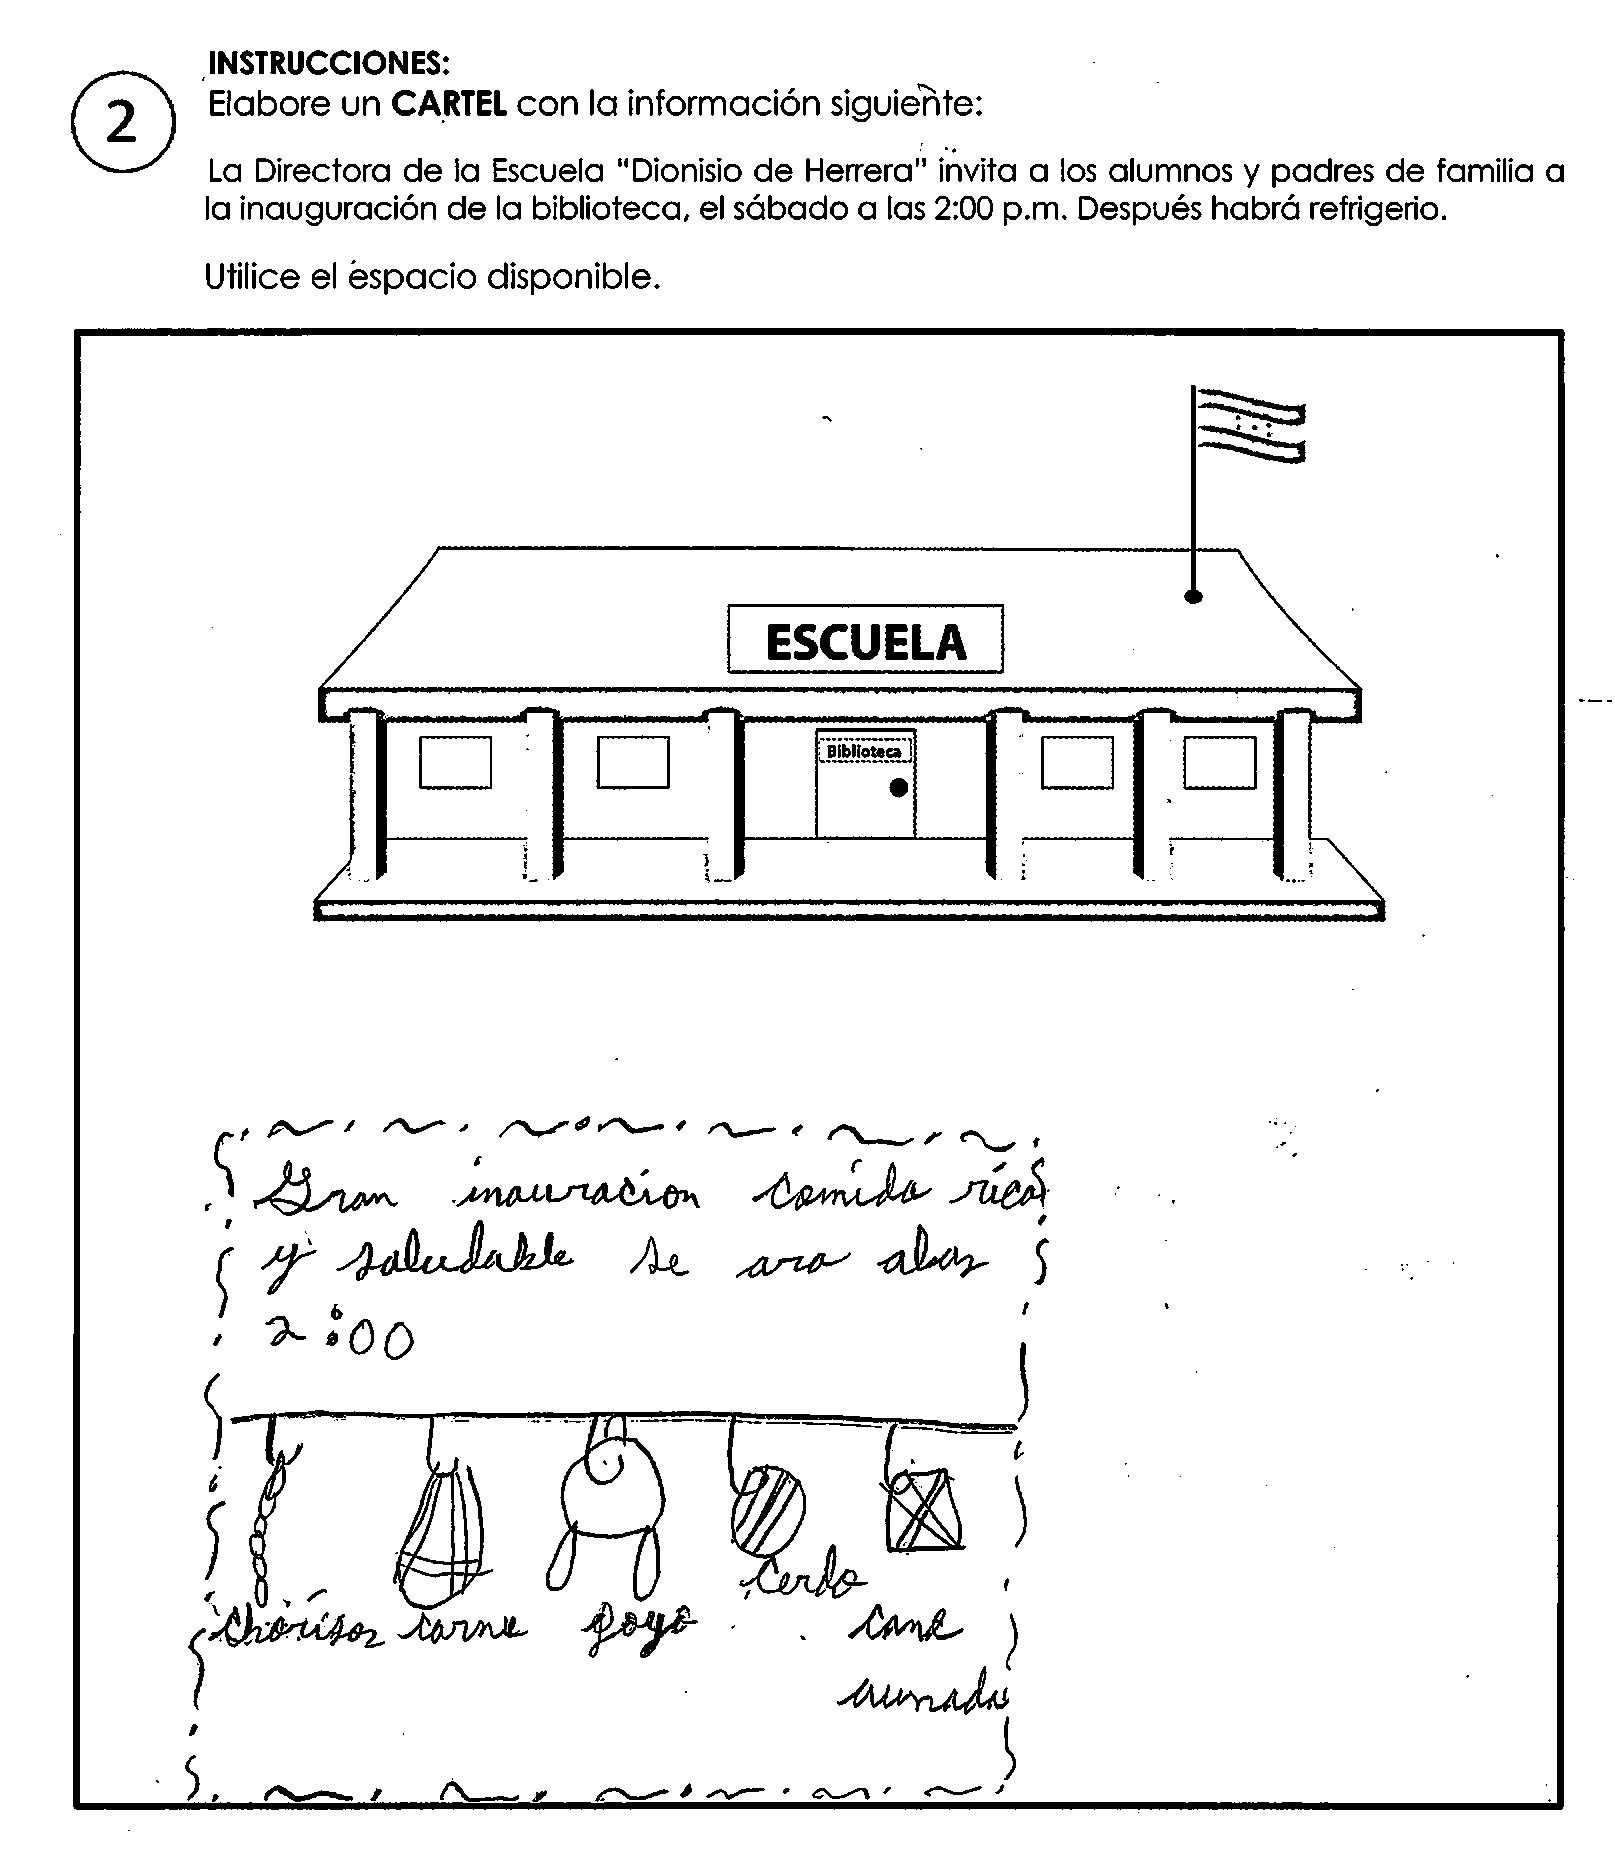 INSTRUCCIONES:
2
Elabore un CARTEL con la información siguiente:
La Directora de la Escuela "Dionisio de Herrera" invita a los alumnos y padres de familia a
la inauguración de la biblioteca, el sábado a las 2:00 p.m. Después habrá refrigerio.
Utilice el espacio disponible.
ESCUELA
Biblioteca
Gran inauracion comida rica
y saludable se ara alas
2:00
chorisos carne poyo cerdo cane
aumada